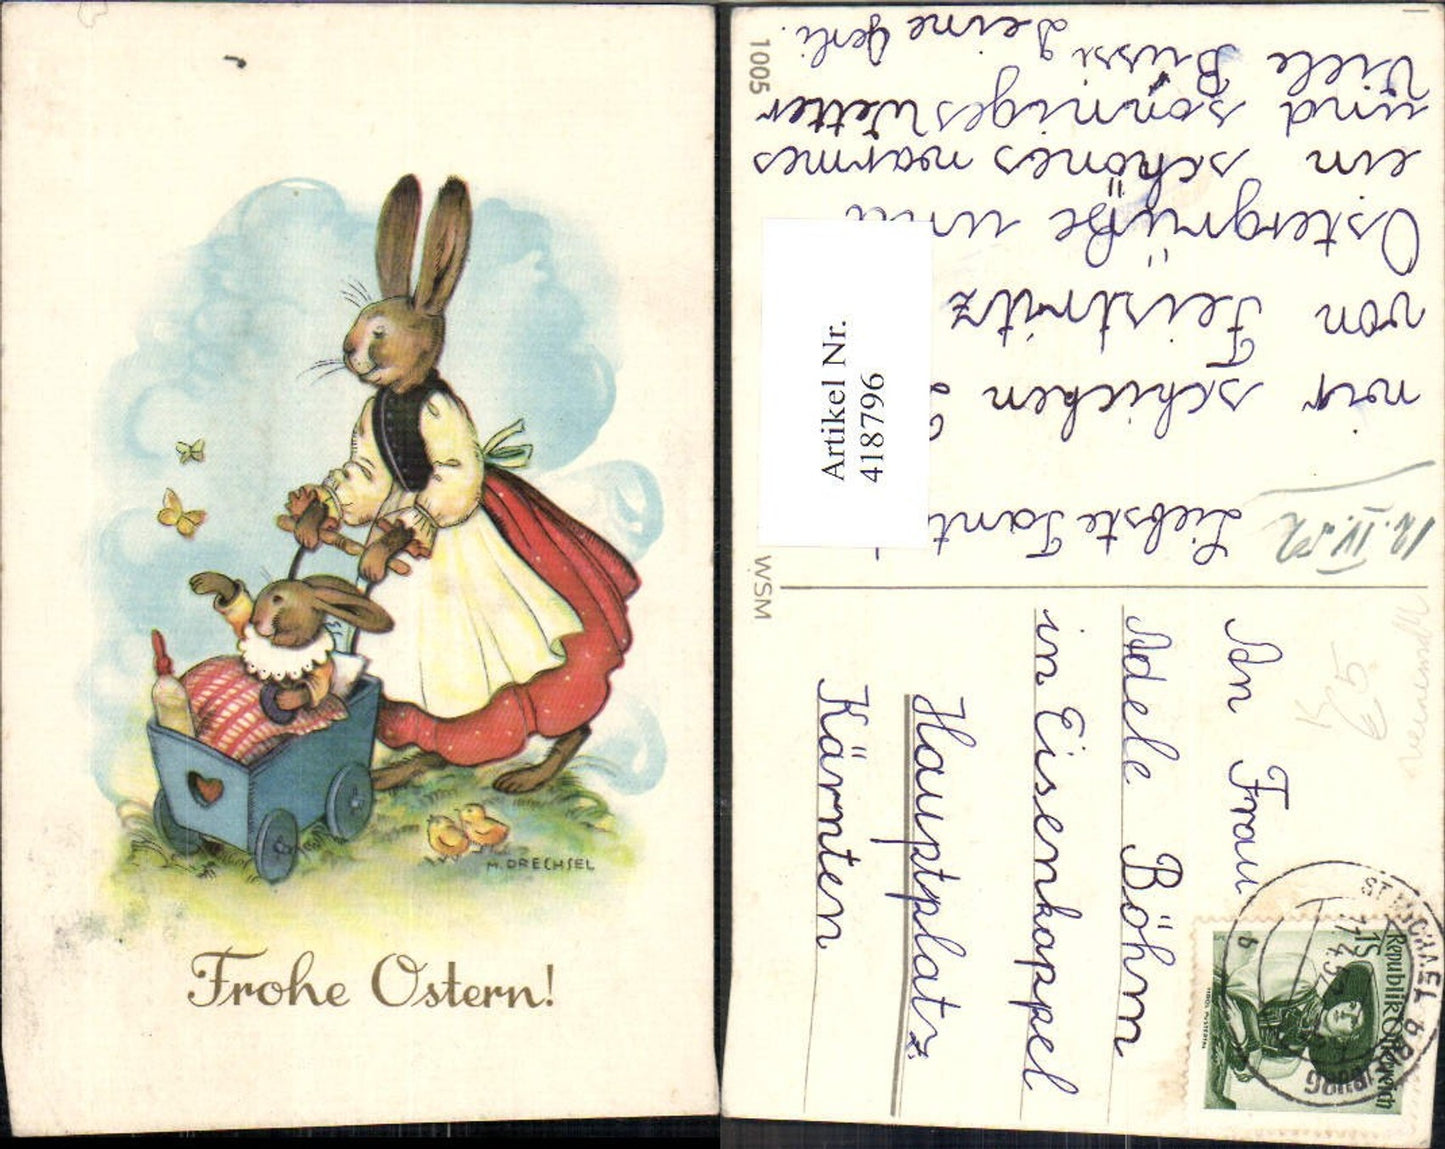 M. DRECHSEL
Frohe Ostern!
1005
WSM
Artikel Nr.
418796
12.IV.52
Liebste Tant
wir schicken
von Feistritz
Ostergrüße und
ein schönes warmes
und sonniges Wetter
Viele Bussi
Deine Gerli.
An Frau
Adele Böhm
in Eisenkappel
Hauptplatz
Kärnten
K
€5
ST. MICHAEL
BURG
17.4.52
1S
Republik Österreich
TIROL, PUSTERTAL